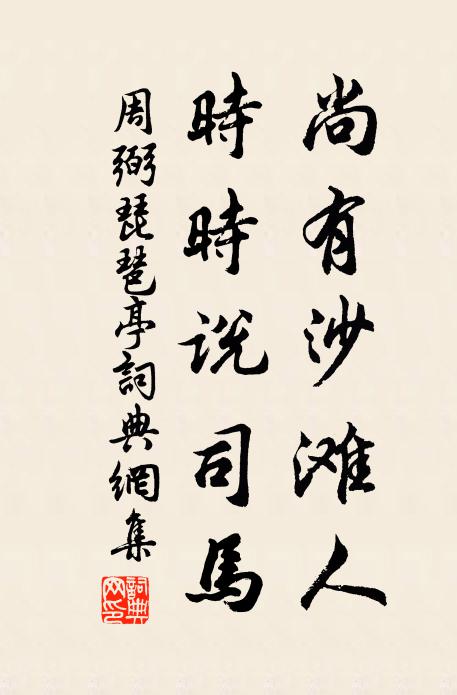 尚有沙滩人
時時説司馬
周弼琵琶亭詞典網集
詞典网印